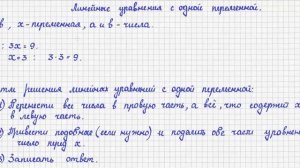 Линейные уравнения с одной переменной.
в, х-переменная, а и в - числа.
: 3х = 9.
х=3 : 3·3=9.
решения линейных уравнений с одной переменной:
Перенести все числа в правую часть, а всё, что содержит х
в левую часть.
Привести подобные (если нужно) и поделить обе части уравнения
число перед х.
Записать ответ.